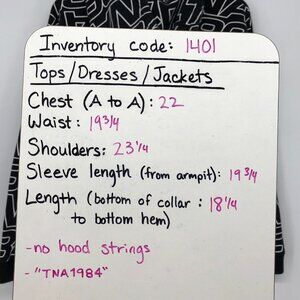 Inventory code: 1401
Tops/Dresses/Jackets
Chest (A to A): 22
Waist: 19 3/4
Shoulders: 23 1/4
Sleeve length (from armpit): 19 3/4
Length (bottom of collar: 18 1/4
to bottom hem)
-no hood strings
-"TNA1984"